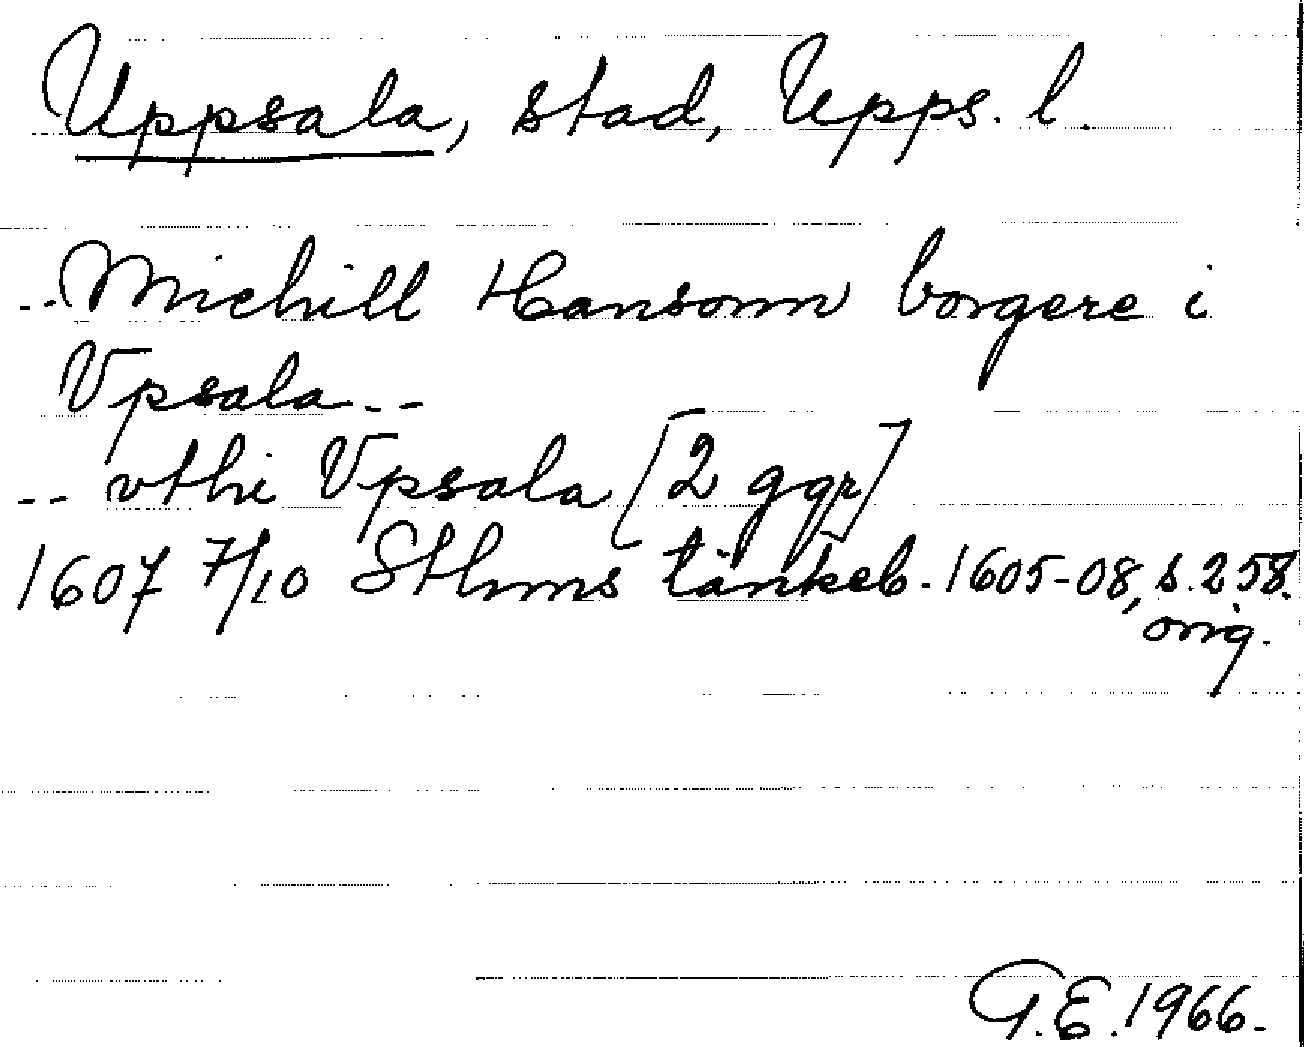 Uppsala, stad, Upps. l.
-- Michill Hansonn borgere i
Vpsala --
-- vthi Vpsala [2 ggr]
1607 7/10 Sthms tänkeb. 1605-08, s. 258.
orig.
G.E. 1966.